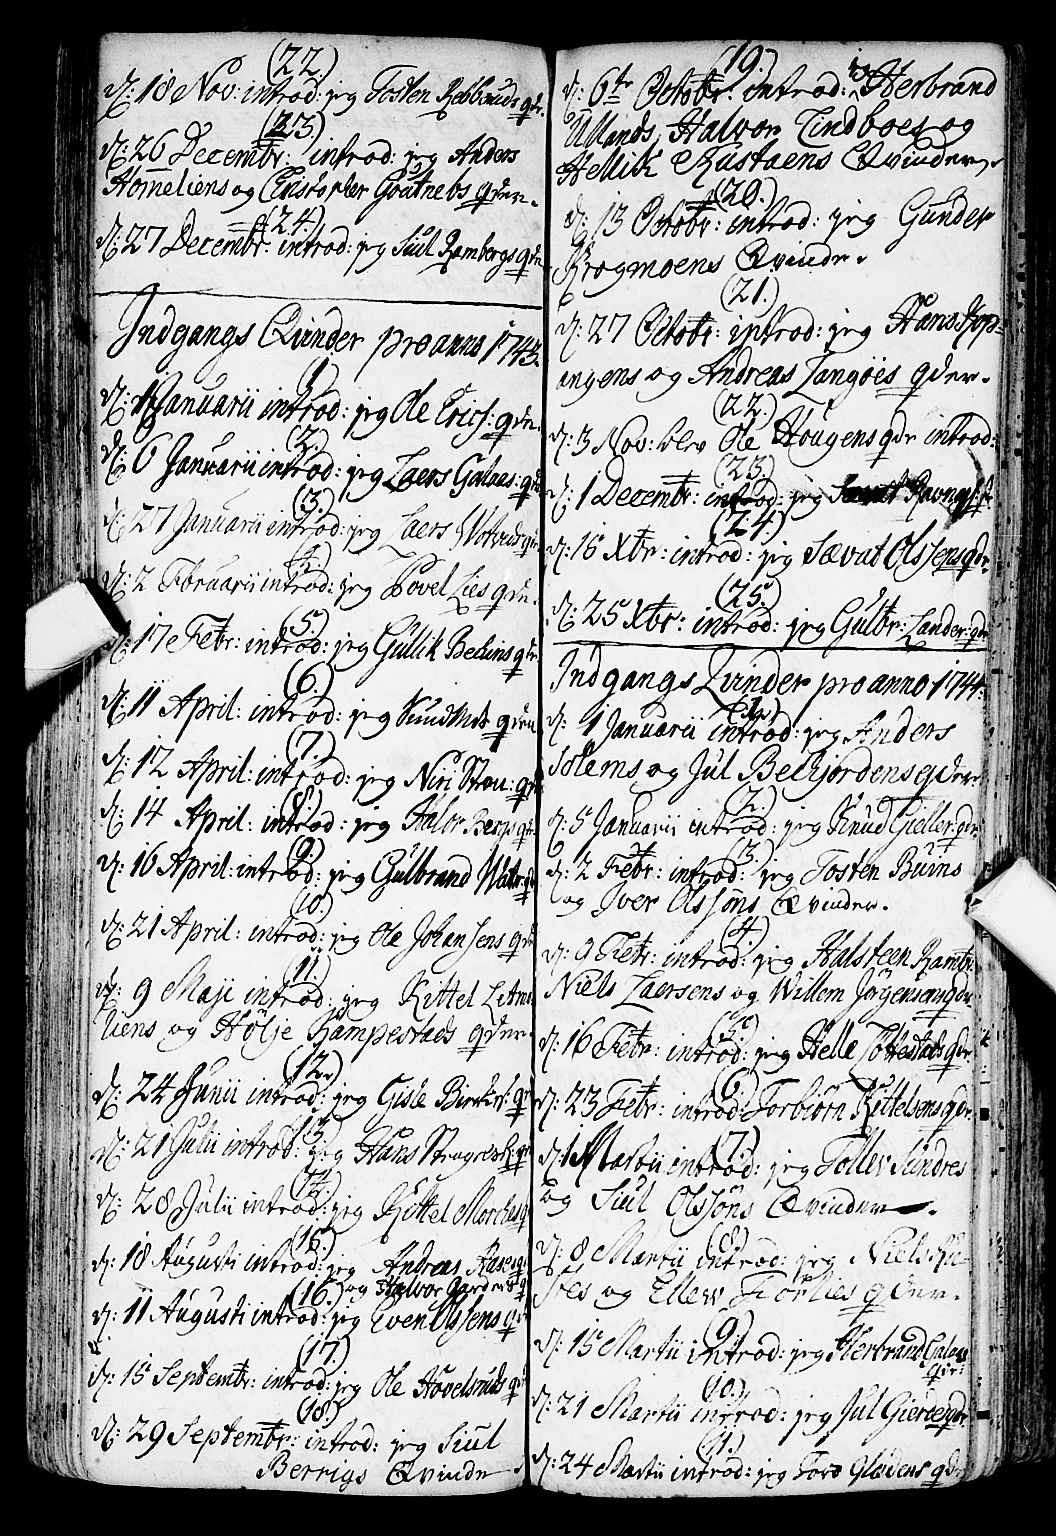 (22.)
d: 18 Nov: introd: jeg Tosten Rebbruds qde.
(23.)
d: 26 Decembr: introd: jeg Anders
Homeliens og Christopher Goutnebs qder.
(24.)
d: 27 Decembr: introd: jeg Siul Rambergs qde
Indgangs Qvinder pro anno 1743.
1.
d: 1 Januarii introd: jeg Ole Erichs: qde.
(2.)
d: 6 Januarii introd: jeg Laers Galaas: qde
(3.)
d: 27 Januarii introd: jeg Laers qde
(4.)
d: 2 Februarii introd: jeg Povel Lies qde.
(5.)
d: 17 Febr: introd: jeg Gullik Bechins qde
(6.)
d: 11 April: introd: jeg Knud qde
(7.)
d: 12 April: introd: jeg Niri qde
(8.)
d: 14 April: introd: jeg Halvor Bergs qde
(9.)
d: 16 April: introd: jeg Gulbrand qde
(10.)
d: 21 April: introd: jeg Ole Johansens qde
(11.)
d: 9 Maji introd: jeg Kittel
liens og Hölje Kampestads qder.
(12.)
d: 24 Junii introd: jeg Gisle qde
13.
d: 21 Julii introd: jeg Hans qde
(14.)
d: 28 Julii introd: jeg Kittel q
(15.)
d: 18 Augusti introd: jeg Andreas Aases q
og Halvor q
(16.)
d: 11 Augusti introd: jeg Even Olssens qde
(17.)
d: 15 Septembr: introd: jeg Ole Hövelsruds qde
(18.)
d: 29 Septembr: introd: jeg Siul
Berrigs Qvinde
(19.)
d: 6te Octobr: introd: jeg Herbrand
Ullands, Halvor Lindboes og
Hellik Rustaens Qvinder.
(20.)
d: 13 Octobr: introd: jeg Gunder
Krogmoens Qvinde.
(21.)
d: 27 Octobr: introd: jeg Hans Kop=
angens og Andreas Langöes qder.
(22.)
d: 3 Nov: blev Ole Hougens qde introd:
(23.)
d: 1 Decembr: introd: jeg
(24.)
d: 15 Xbr: introd: jeg Sævat Olssens qde.
(25.)
d: 25 Xbr: introd: jeg Gulbr: Lander: qde
Indgangs Qvinder pro anno 1744.
(1.)
d: 1 Januarii introd: jeg Anders
Solems og Jul Bechjordens qder.
(2.)
d: 5 Januarii introd: jeg Knud Gieller: qde
(3.)
d: 2 Febr: introd: jeg Tosten Buins
og Iver Olssöns Qvinder.
(4.)
d: 9 Febr: introd: jeg Halsteen Rambr:
Niels Laersens og Willem Jörgensens qder.
(5.)
d: 16 Febr: introd: jeg Helle Tottestads qde.
(6.)
d: 23 Febr: introd: Torbiörn Kittelsens qde.
(7.)
d: 1 Martii introd: jeg Tollev Sundres
og Siul Olssöns Qvinder.
(8.)
d: 8 Martii introd: jeg Niels Ru=
stes og Ellev qder.
(9.)
d: 15 Martii introd: jeg Herbrand Galaas
qde:
(10.)
d: 21 Martii introd: jeg Jul qde.
(11.)
d: 24 Martii introd: jeg Tord qde.